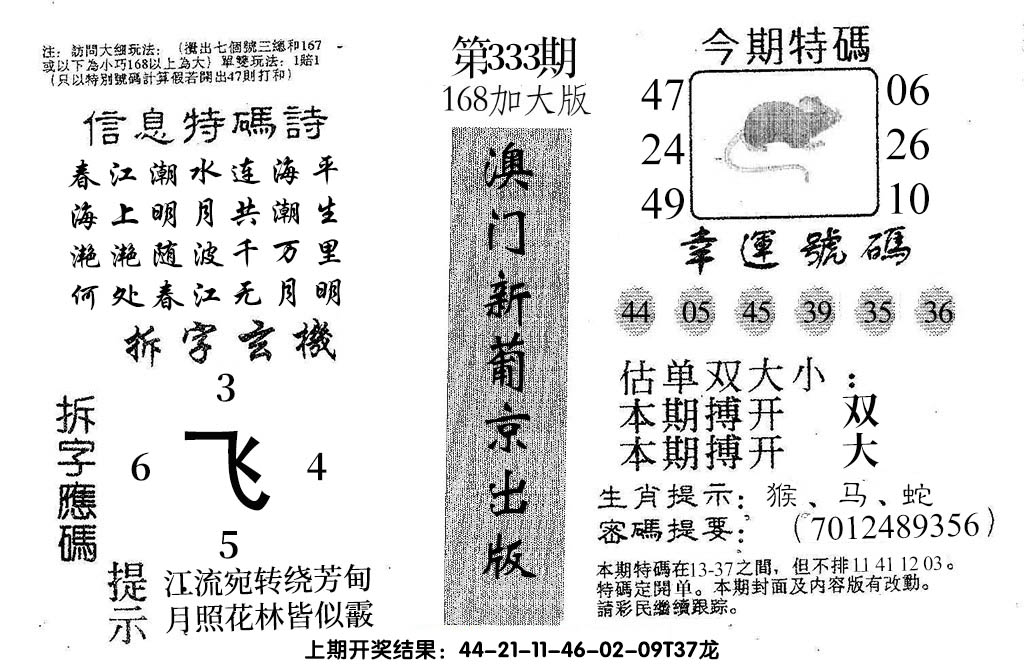 注：訪問大細玩法：（攪出七個號三總和167
或以下為小巧168以上為大）單雙玩法：1賠1
（只以特別號碼計算假若開出47則打和）
信息特碼詩
春江潮水连海平
海上明月共潮生
滟滟随波千万里
何处春江无月明
拆字玄機
拆字應碼
3
6 飞 4
5
提示
江流宛转绕芳甸
月照花林皆似霰
第333期
168加大版
澳门新葡京出版
今期特碼
47 06
24 26
49 10
幸運號碼
44 05 45 39 35 36
估单双大小：
本期搏开 双
本期搏开 大
生肖提示：猴、马、蛇
密碼提要：（7012489356）
本期特碼在13-37之間，但不排11 41 12 03。
特碼定開单。本期封面及内容版有改動。
請彩民繼續跟踪。
上期开奖结果：44-21-11-46-02-09T37龙